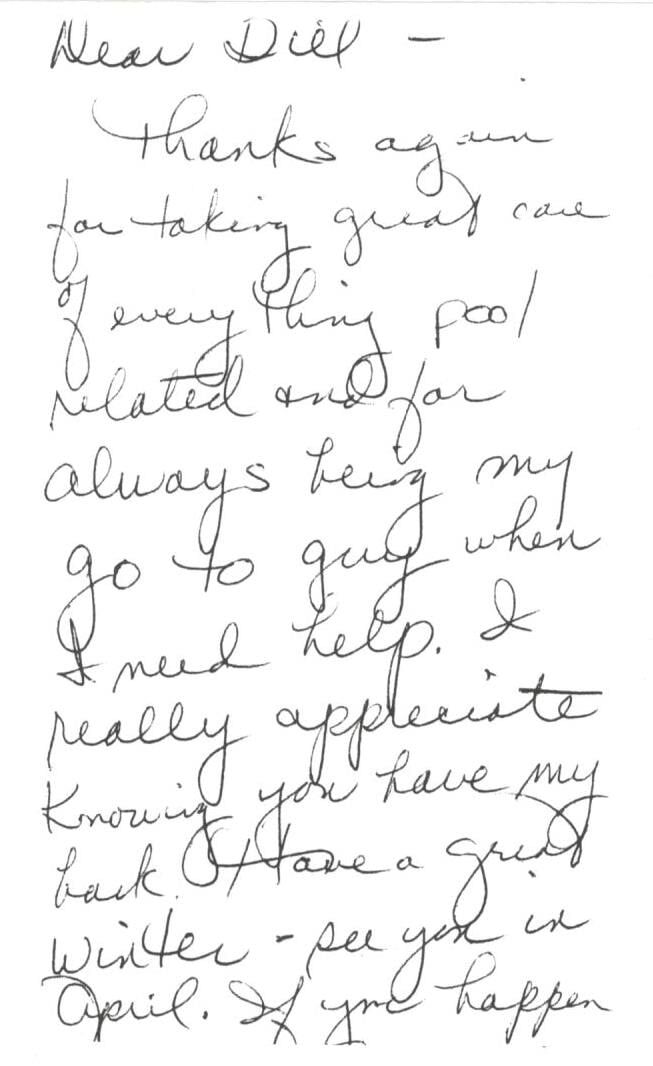 Dear Dill -
Thanks again
for taking great care
of everything pool
related and for
always being my
go to guy when
I need help. I
really appreciate
Knowing you have my
back. Have a great
Winter - see you in
April. If you happen